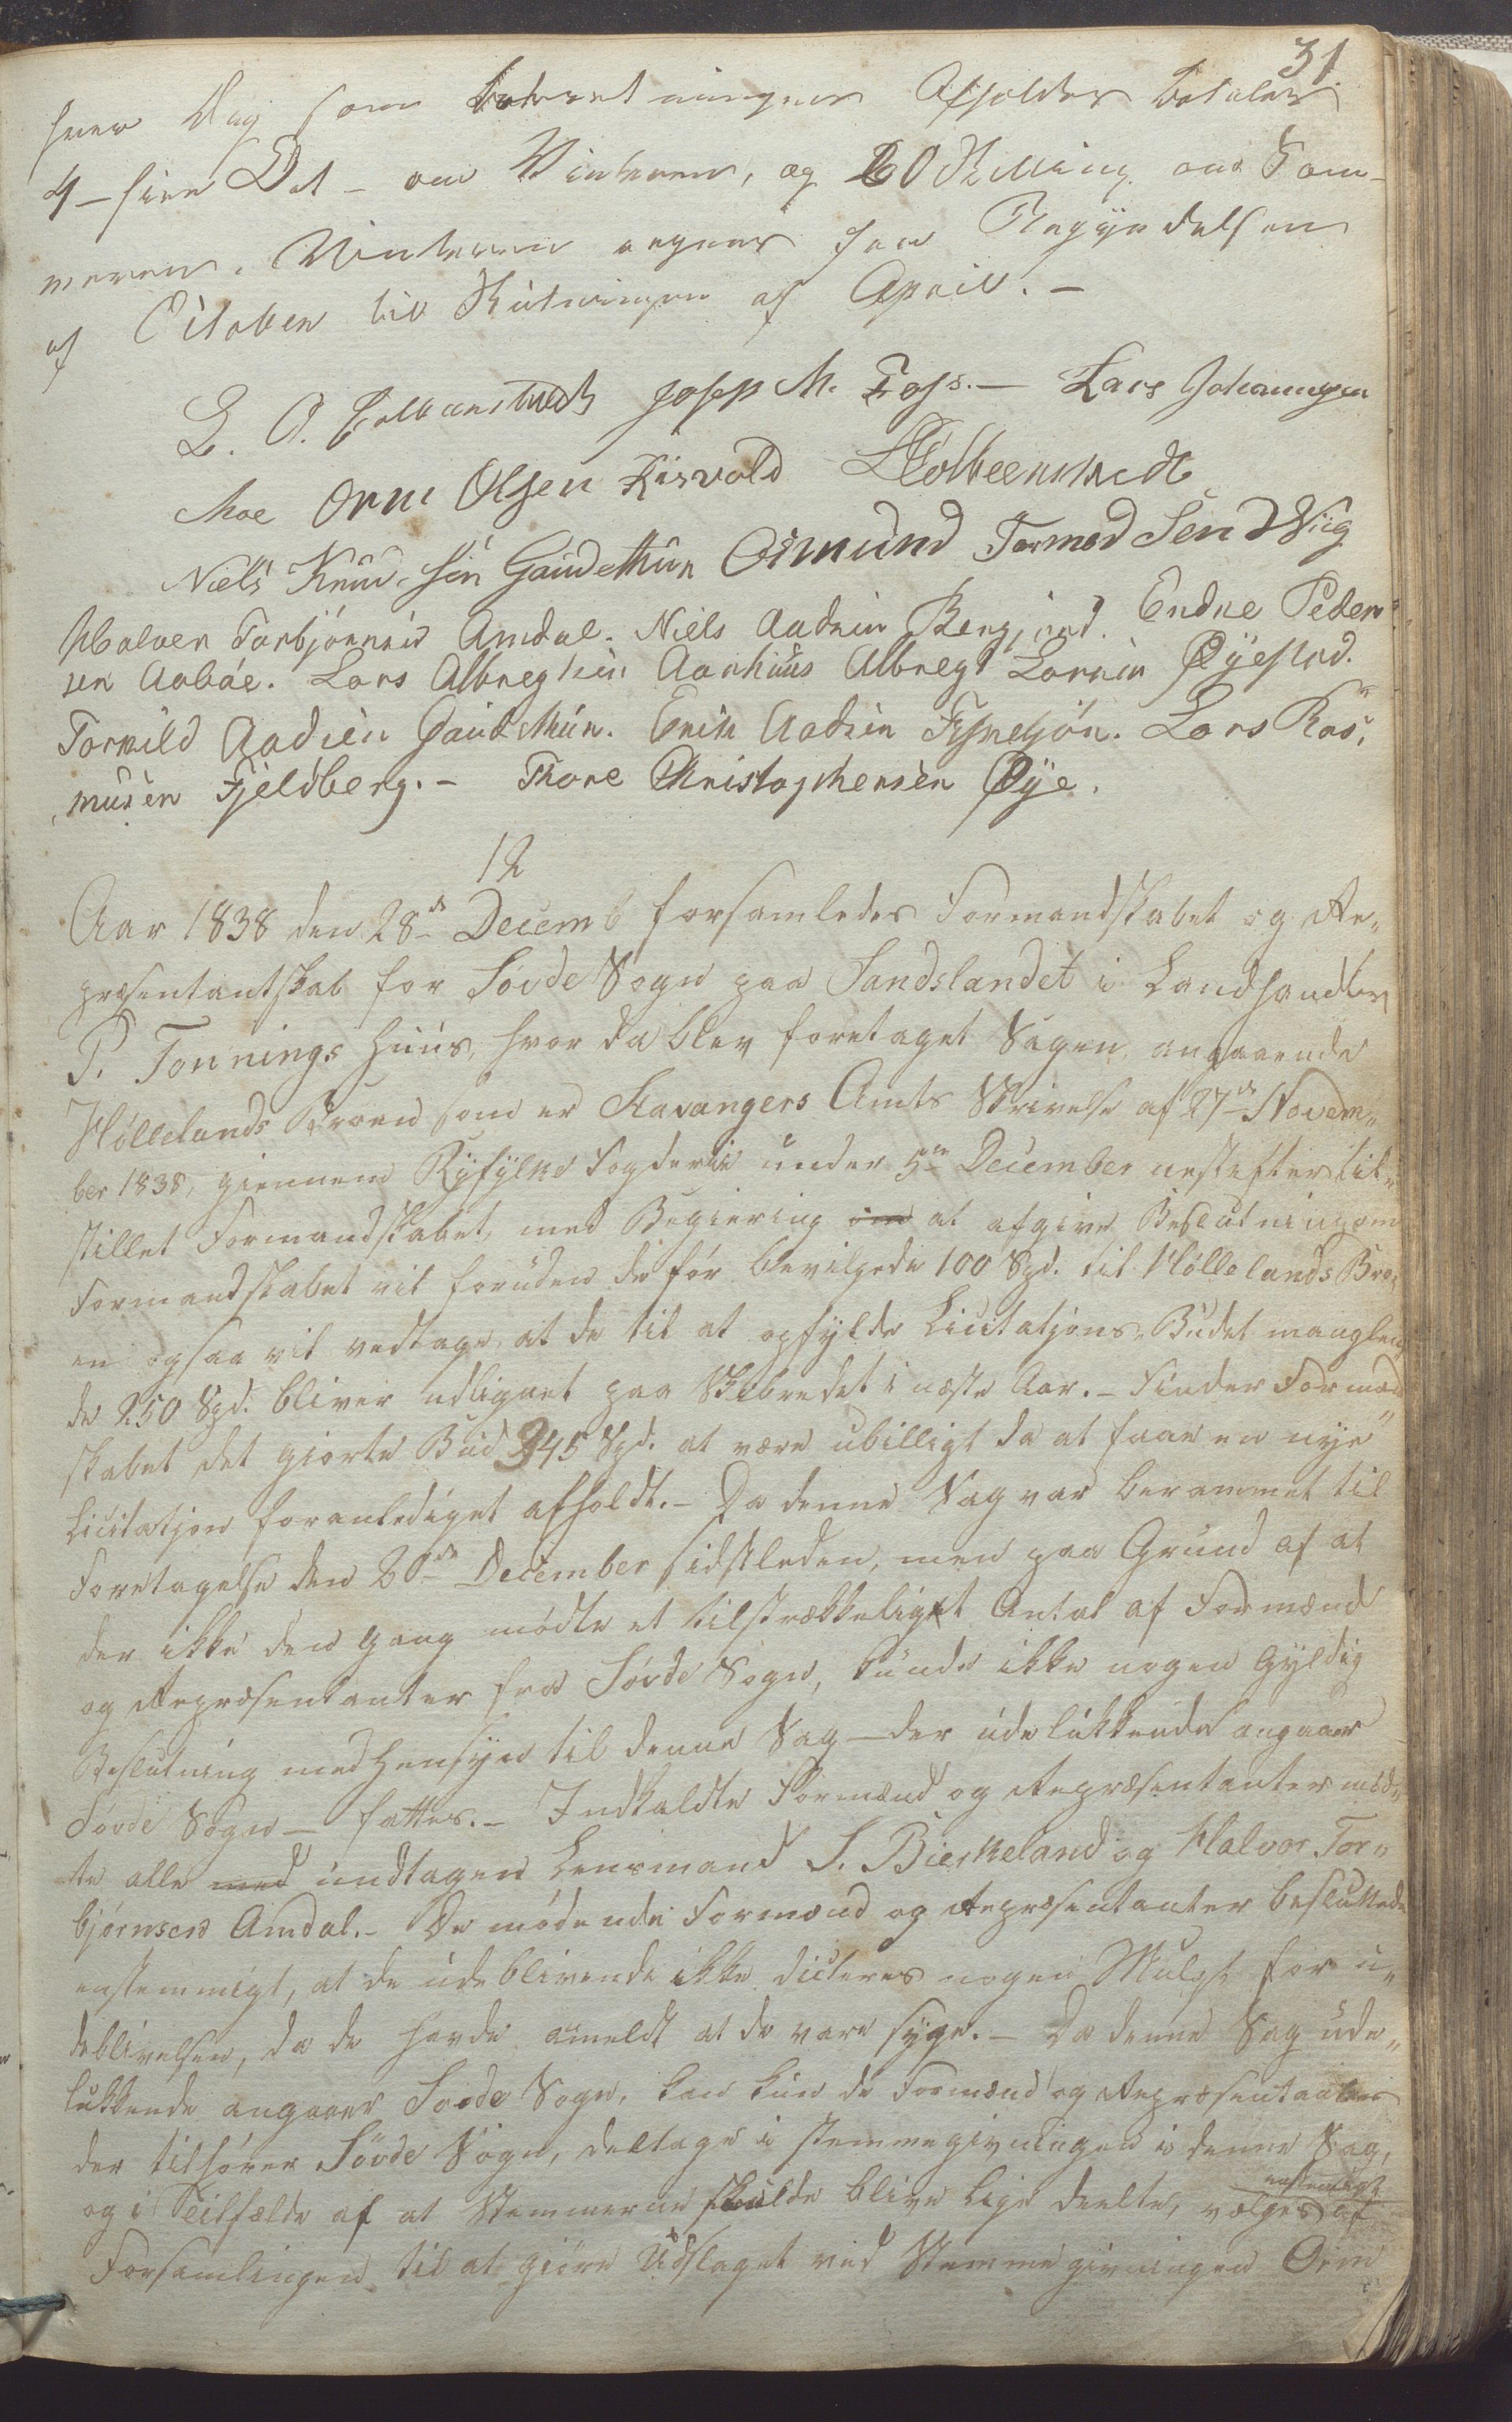 31.
hver Dag som Forretningen Afholdes betales
4 - fire Ort - om Vinteren, og 60 Skilling om Som-
meren. Vinteren regnes fra Begyndelsen
af October til Slutningen af April. -
L. O. Josep M. Foss. - Lars Johannesen
Moe Orm Olsen Risvold
Niels Knudsen Gaudethun Osmund Tormodsen Wiig
Halvor Torbjørnsen Amdal. Niels Aadsen Endre Peder
sen Aabøe. Lars Albregtsen Aarhuus Albregt Larsen Øyestad.
Torkild Aadsen Gaudethun. Erik Aadsen Lars Ras,
musen Fjeldberg. - Thore Christophersen Øye.
12
Aar 1838 den 28de Decemb forsamledes Formandskabet og Re„
præsentantskab for Søvde Sogn paa Sandslandet i Landhandler
P. Tonnings Huus, hvor da blev foretaget Sagen angaaende
Høllelands Broen som er Stavangers Amts Skrivelse af 27de Novem„
ber 1838, giennem Ryfylke Fogderie under 5te December nestefter til„
stillet Formandskabet, med Begiering om at afgive Beslutning om
Formandskabet vil foruden de før bevilgede 100 Spd. til Høllelands Bro„
en ogsaa vil vedtage, at de til at opfylde Licitatjons Budet manglen„
de 250 Spd. bliver udlignet paa Skibredet i næste Aar. - Finder Formand„
skabet det giorte Bud 345 Spd. at være ubilligt da at faae en nye
Licitatjon foranlediget afholdt. - Da denne Sag var berammet til
Foretagelse den 20de December sidstleden, men paa Grund af at
der ikke den Gang mødte et tilstrækkeligt Antal af Formænd
og Repræsentanter fra Søvde Sogn, kunde ikke nogen gyldig
Beslutning med Hensyn til denne Sag - der udelukkende angaaer
Søvde Sogn - fattes. - Indkaldte Formænd og Repræsentanter mød„
te alle med undtagen Lensmand S. Bierkeland og Halvor Tor„
bjørnsen Amdal. - De mødende Formænd og Repræsentanter besluttede
enstemmigt, at de udeblivende ikke dicteres nogen Mulct for u„
deblivelsen, da de havde anmeldt at de vare syge. - Da denne Sag ude„
lukkende angaaer Søvde Sogn, kan kun de Formænd og Repræsentanter
der tilhører Søvde Sogn, deltage i Stemmegivningen i denne Sag,
og i Tilfælde af at Stemmerne skulde blive lige deelte, vælges enstemigt af
Forsamlingen til at giøre Udslaget ved Stemmegivningen Orm